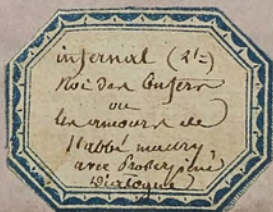 infernal (2e=)
Noé dans Enfers
ou
les amours de
l'abbé maury
avec Proserpine
Dialogue